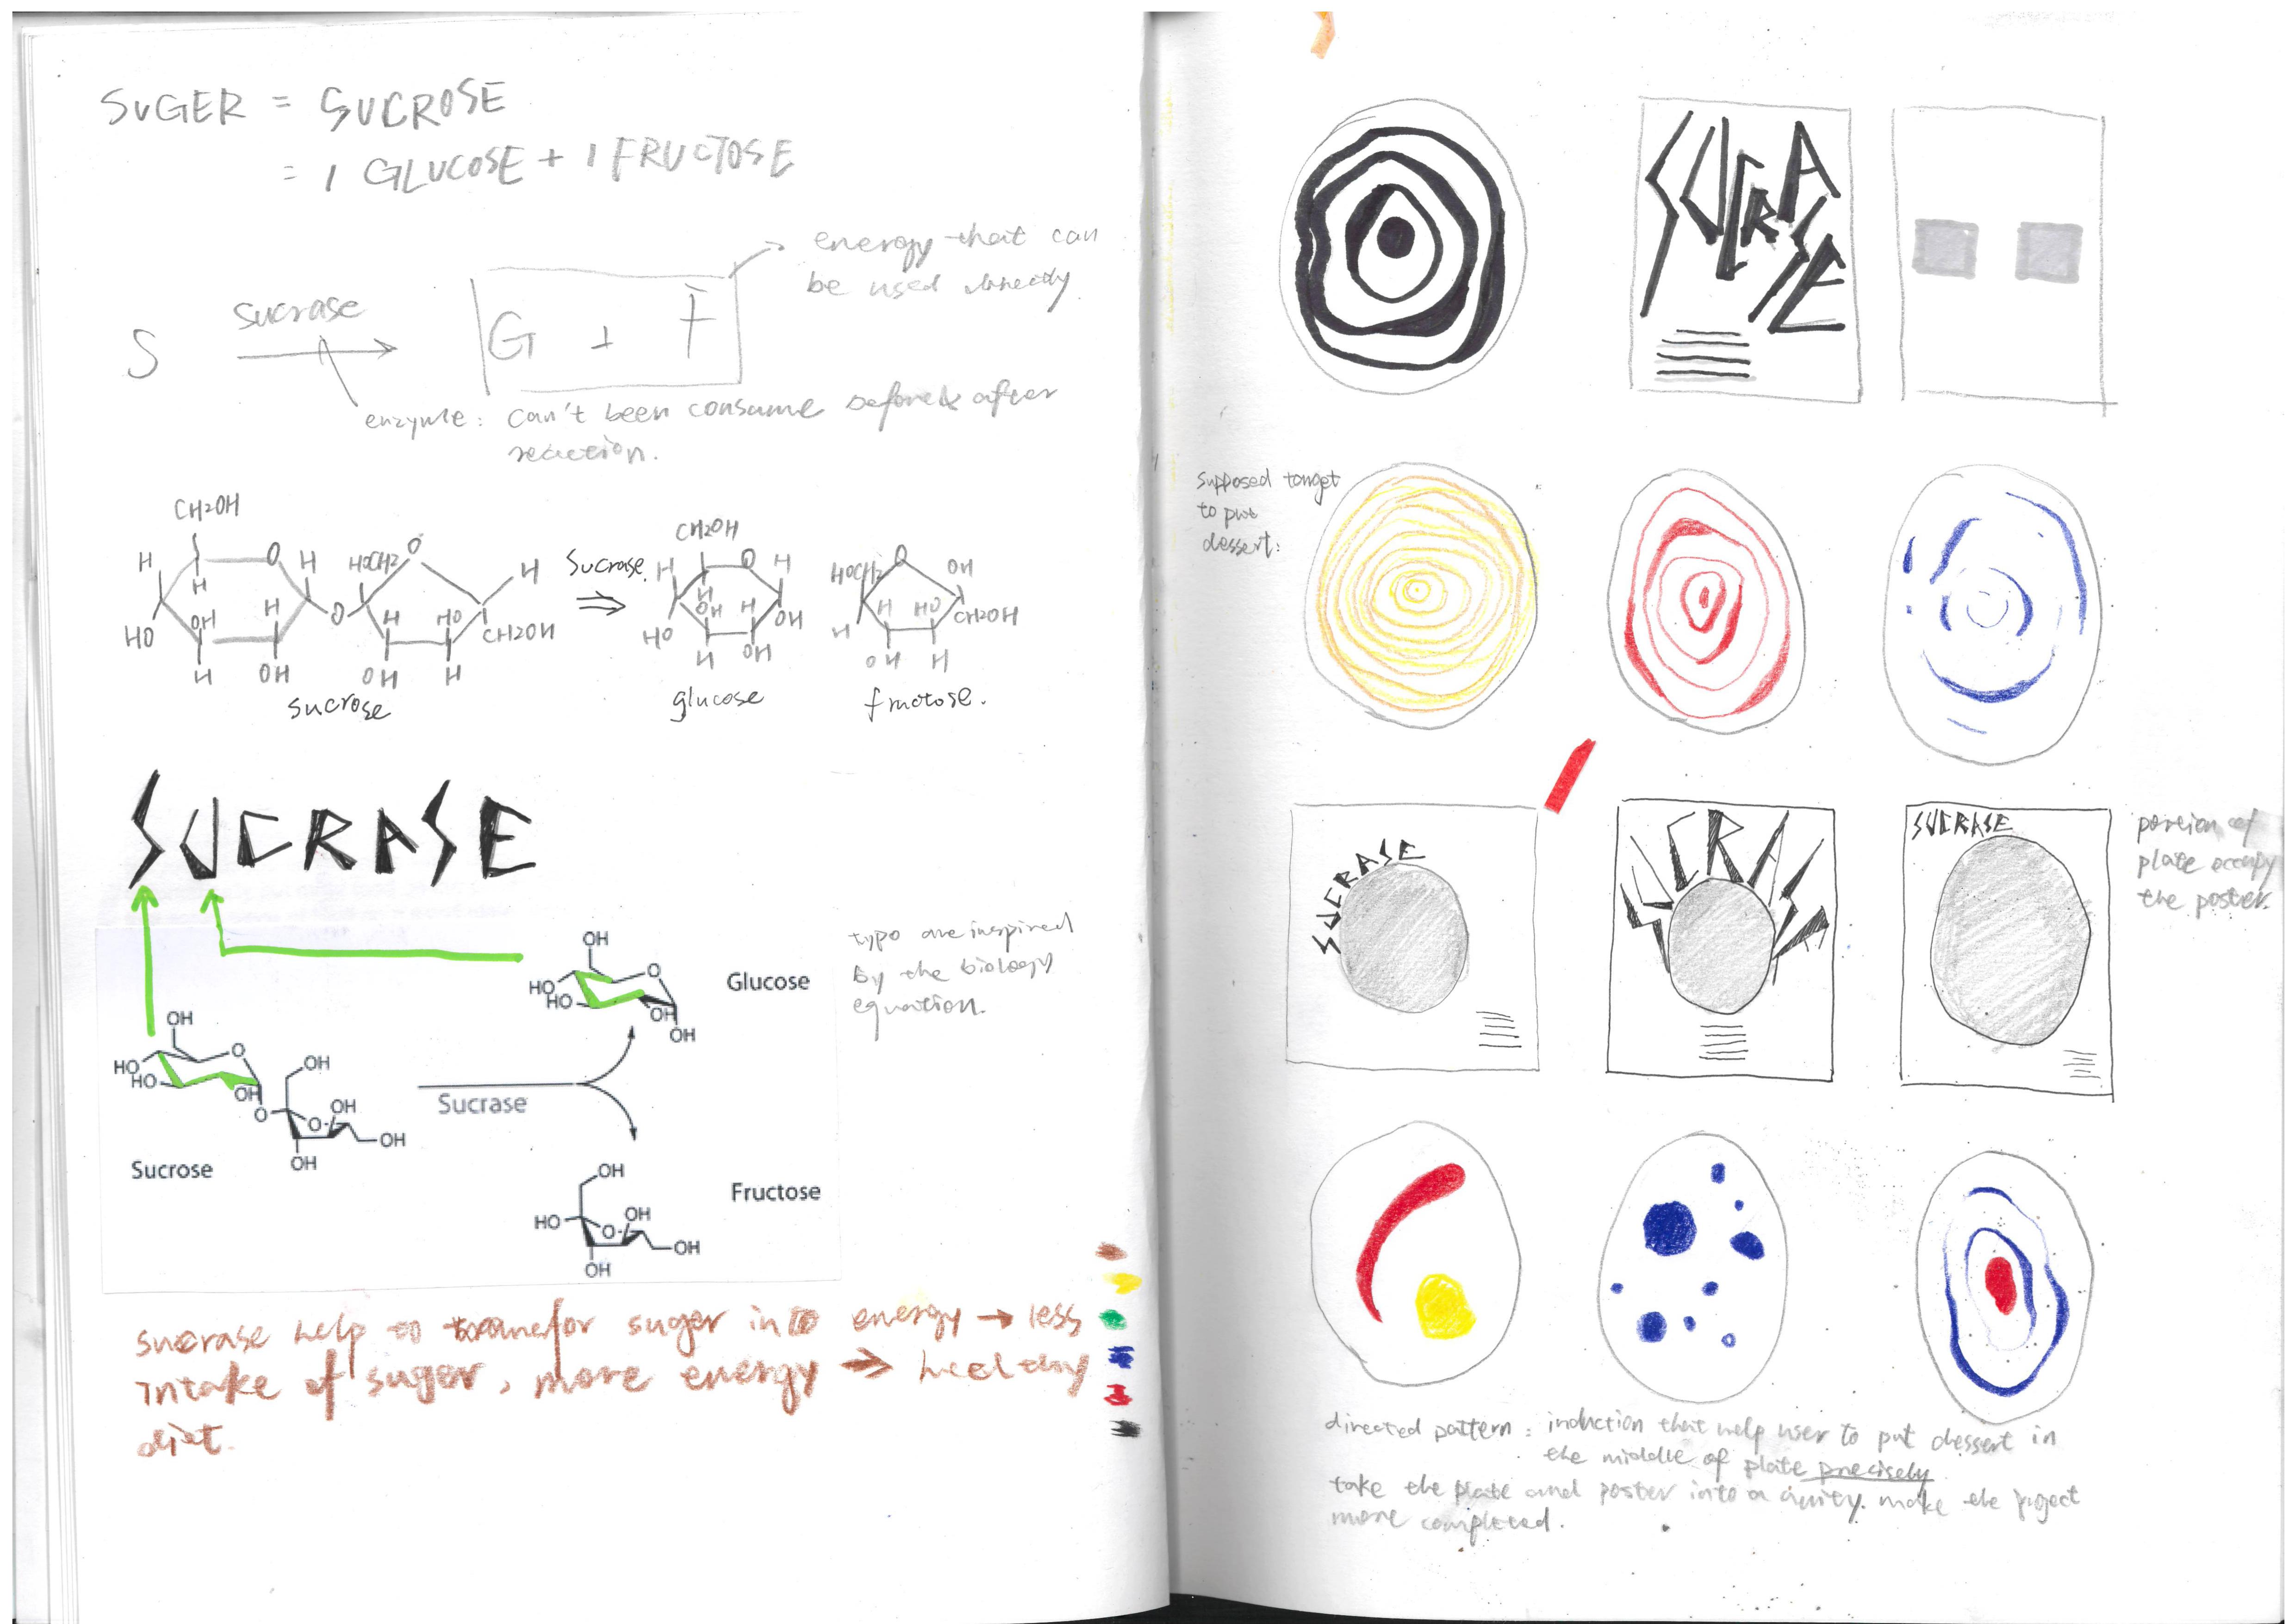 SUGER = SUCROSE
= 1 GLUCOSE + 1 FRUCTOSE
energy that can
be used directly.
S
sucrase
G + F
enzyme: can't been consume before & after
reaction.
CH2OH
H
O
H
HOCH2
O
H
H
HO
OH
H
O
H
HO
CH2OH
H
OH
OH
H
sucrose
Sucrase.
CH2OH
H
O
H
H
OH
H
HO
OH
H
OH
glucose
HOCH2
O
OH
H
HO
CH2OH
H
OH
H
fructose.
SUCRASE
typo are inspired
by the biology
equation.
OH
HO
HO
O
OH
O
OH
O
OH
OH
OH
Sucrose
Sucrase
OH
HO
HO
O
OH
OH
Glucose
OH
HO
O
OH
OH
OH
Fructose
sucrase help to transfor suger into energy → less
intake of suger, more energy → healthy
diet.
SUCRASE
supposed target
to put
dessert:
SUCRASE
SUCRASE
SUCRASE
portion of
plate occupy
the poster.
directed pattern: induction that help user to put dessert in
the middle of plate precisely
take the plate and poster into a unity. make the project
more completed.